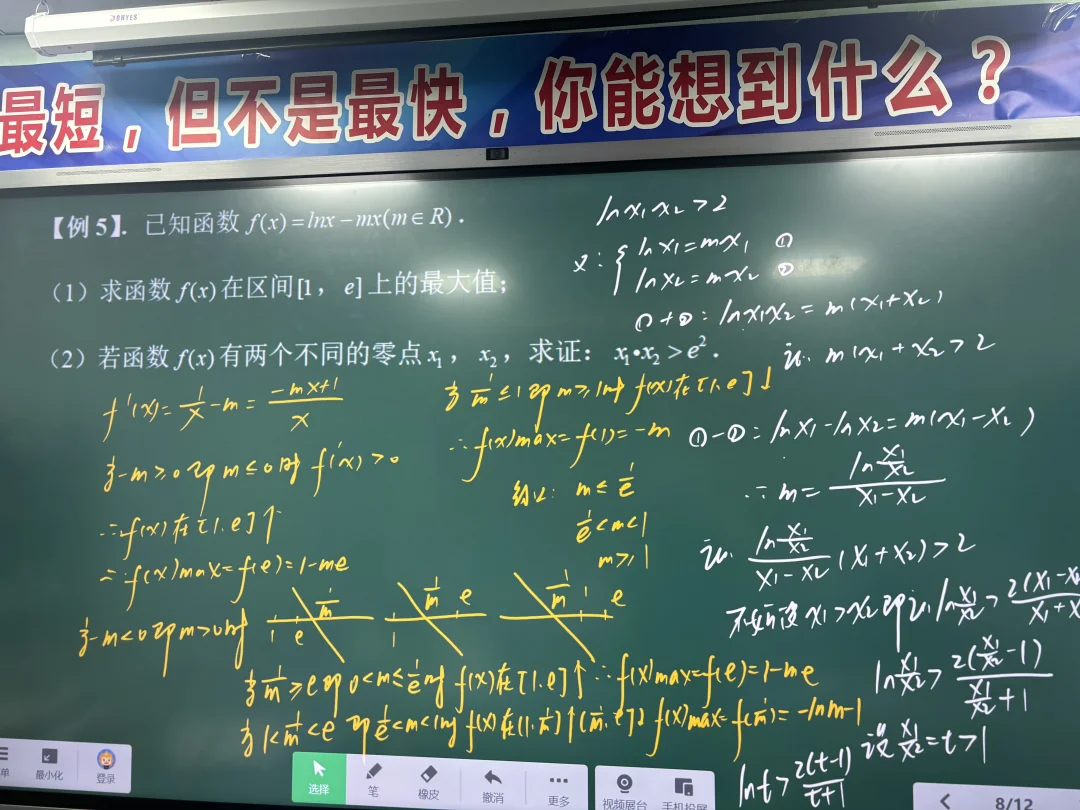 DONYES
最短，但不是最快，你能想到什么？
【例 5】. 已知函数 f(x)=lnx−mx(m∈R).
（1）求函数 f(x) 在区间[1，e]上的最大值；
（2）若函数 f(x) 有两个不同的零点 x₁，x₂，求证：x₁•x₂>e².
f'(x)=1/x-m=(-mx+1)/x
当-m≥0即m≤0时 f'(x)>0
∴f(x)在[1.e]↑
∴f(x)max=f(e)=1-me
当-m<0即m>0时
1 e 1/m
1 1/m e
1/m 1 e
当1/m≥e即0<m≤1/e时 f(x)在[1.e]↑∴f(x)max=f(e)=1-me
当1<1/m<e 即1/e<m<1时 f(x)在(1.1/m)↑(1/m.e]↓ f(x)max=f(1/m)=-lnm-1
当1/m≤1即m≥1时 f(x)在[1.e]↓
∴f(x)max=f(1)=-m
综上: m≤1/e
1/e<m<1
m≥1
lnx₁x₂>2
又: { lnx₁=mx₁ ①
lnx₂=mx₂ ②
①+②: lnx₁x₂=m(x₁+x₂)
证. m(x₁+x₂)>2
①-②: lnx₁-lnx₂=m(x₁-x₂)
∴m=ln(x₁/x₂)/(x₁-x₂)
证. ln(x₁/x₂)/(x₁-x₂) (x₁+x₂)>2
不妨设x₁>x₂即证ln(x₁/x₂)>2(x₁-x₂)/(x₁+x
ln(x₁/x₂)>2(x₁/x₂-1)/(x₁/x₂+1)
设x₁/x₂=t>1
lnt>2(t-1)/(t+1)
单
最小化
登录
选择
笔
橡皮
撤消
更多
视频展台
手机投屏
8/12